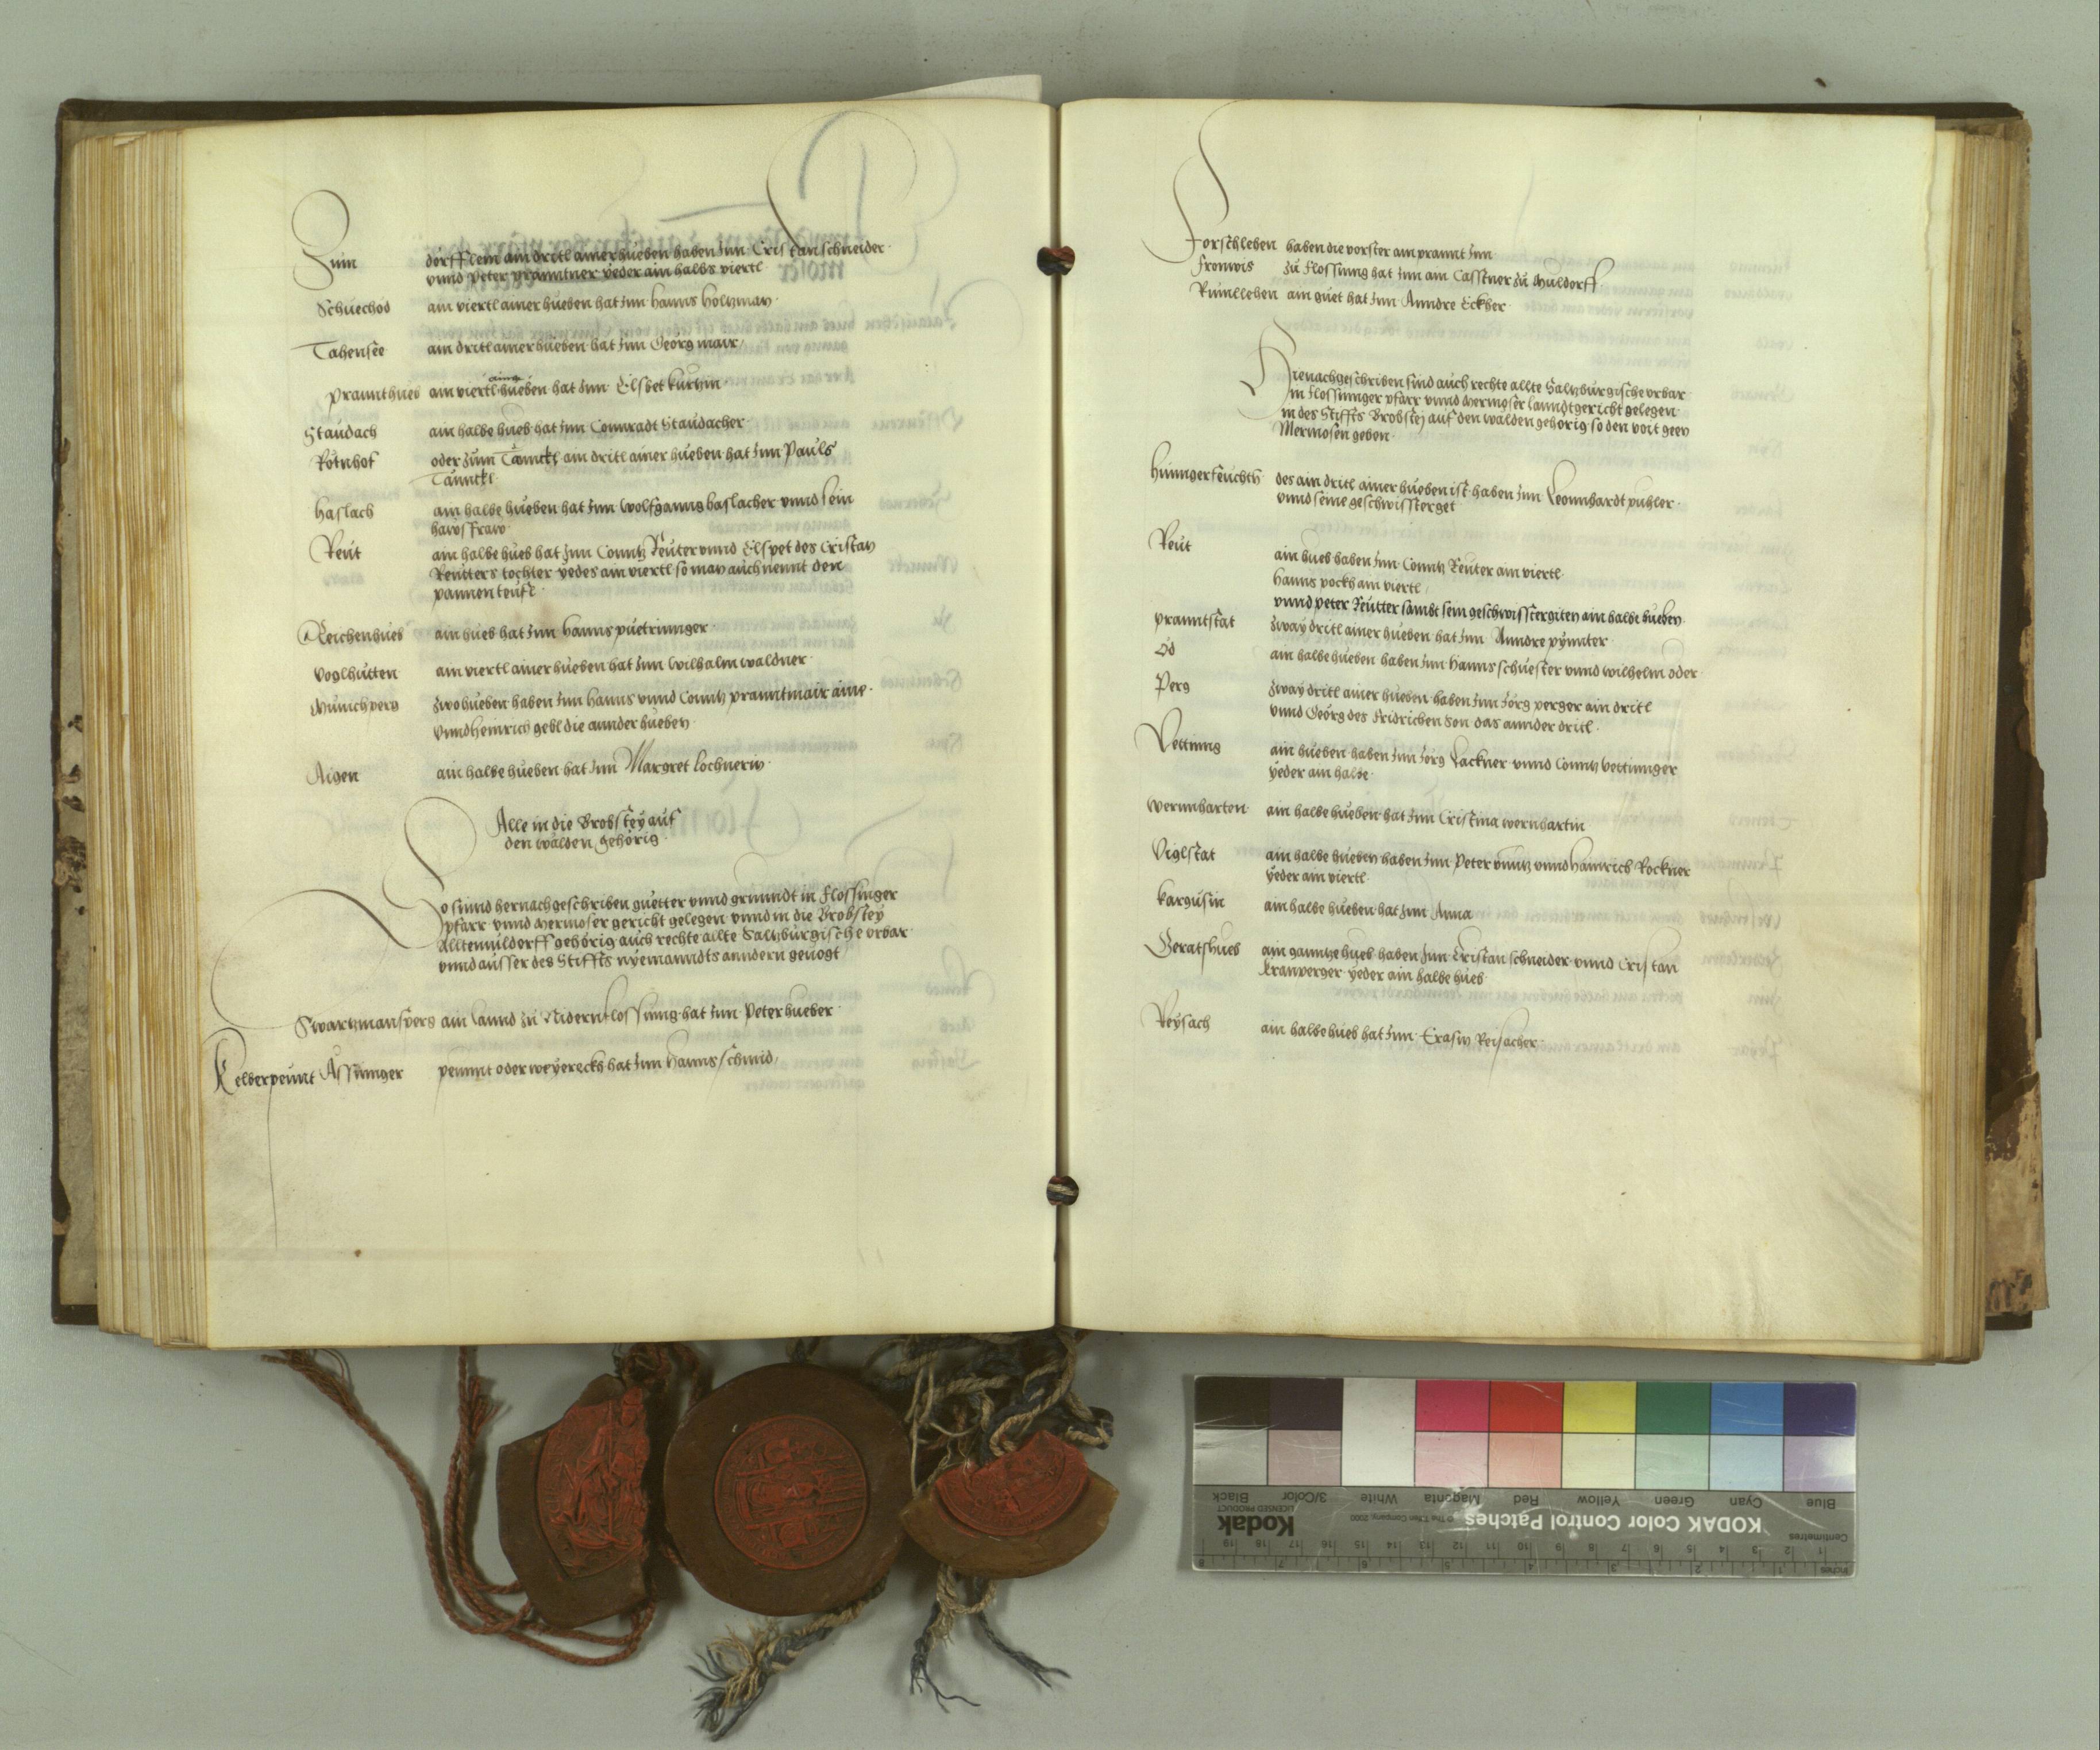 Zum dorfflein ain dritl ainer hueben haben Inn Cristan schneider
vnnd Peter pranntner yeder ain halbs viertl
Schuechod ain viertl ainer hueben hat Inn Hanns Holtzman
Tahensee ain dritl ainer hueben hat Inn Georg mair
prannthueb ain viertl ainer hueben hat Inn Elsbet kurtzin
Staudach ain halbe hueb hat Inn Connradt Staudacher
Rotnhof oder zum Tannckl ain dritl ainer hueben hat Inn Pauls
Tannckl
Haslach ain halbe hueben hat Inn Wolfganng haslacher vnnd sein
hawsfraw
Reut ain halbe hueb hat Inn Conntz Reuter vnnd Elspet des Cristan
Reutters tochter yedes ain viertl so man auch nennt den
pannenteufl
Reichenhueb ain hueb hat Inn Hanns puetrinnger
Voglhutten ain viertl ainer hueben hat Inn Wilhalm waldner
Munichperg zwo hueben haben Inn Hanns vnnd Conntz pranntmair aine
vnnd Heinrich gebl die annder hueben
Aigen ain halbe hueben hat Inn Margret lochnerin
Alle in die Brobstey auf
den walden gehorig
So sinnd hernachgeschriben guetter vnnd grunndt in Flossinger
pfarr vnnd Mermoser gericht gelegen vnnd in die Brobstey
Alltenmuldorff gehorig auch rechte allte Saltzburgische vrbar
vnnd ausser des Stiffts nyemanndts anndern geuogt
Swartzmansperg ain lannd zu Nidernflossing hat Inn Peter hueber
Kelberpeunt Assinnger peunnt oder weyereckh hat Inn Hanns schmid
Vorschleben haben die vorster am prannt Inn
Fronwis zu Flossing hat Inn ain Casstner zu Muldorff
Rumllehen ain guet hat Inn Anndre Eckher
Hienachgeschriben sind auch rechte allte Saltzburgische vrbar
in Flossinger pfarr vnnd Mermoser lanndtgericht gelegen
in des Stiffts Brobstej auf den walden gehorig so den voit geen
Mermosen geben
Hunngerfeuchtn des ain dritl ainer hueben ist haben Inn Leonnhardt puhler
vnnd seine geschwissterget
Reut ain hueb haben Inn Conntz Reuter ain viertl
Hanns pockh ain viertl
vnnd peter Reutter sambt sein geschwisstergiten ain halbe hueben
pranntstat zway dritl ainer hueben hat Inn Anndre pynnter
Öd ain halbe hueben haben Inn Hanns schuester vnnd wilhelm oder
Perg zway dritl ainer hueben haben Inn Jorg perger ain dritl
vnnd Georg des fridrichen son das annder dritl
Vetting ain hueben haben Inn Jorg Lackner vnnd Conntz vettinnger
yeder ain halbe
Wernnharten ain halbe hueben hat Inn Cristina wernhartin
Viglstat ain halbe hueben haben Inn Peter vnntz vnnd Hainrich Rockner
yeder ain viertl
kargusin ain halbe hueben hat Inn Anna
Geratshueb ain ganntze hueb haben Inn Cristan schneider vnnd Cristan
kranperger yeder ain halbe hueb
Reysach ain halbe hueb hat Inn Erasm Reisacher
Blue Cyan Green Yellow Red Magenta White 3/Color Black
KODAK Color Control Patches © The Tiffen Company, 2000 Kodak
LICENSED PRODUCT
Centimetres 1 2 3 4 5 6 7 8 9 10 11 12 13 14 15 16 17 18 19
Inches 1 2 3 4 5 6 7 8